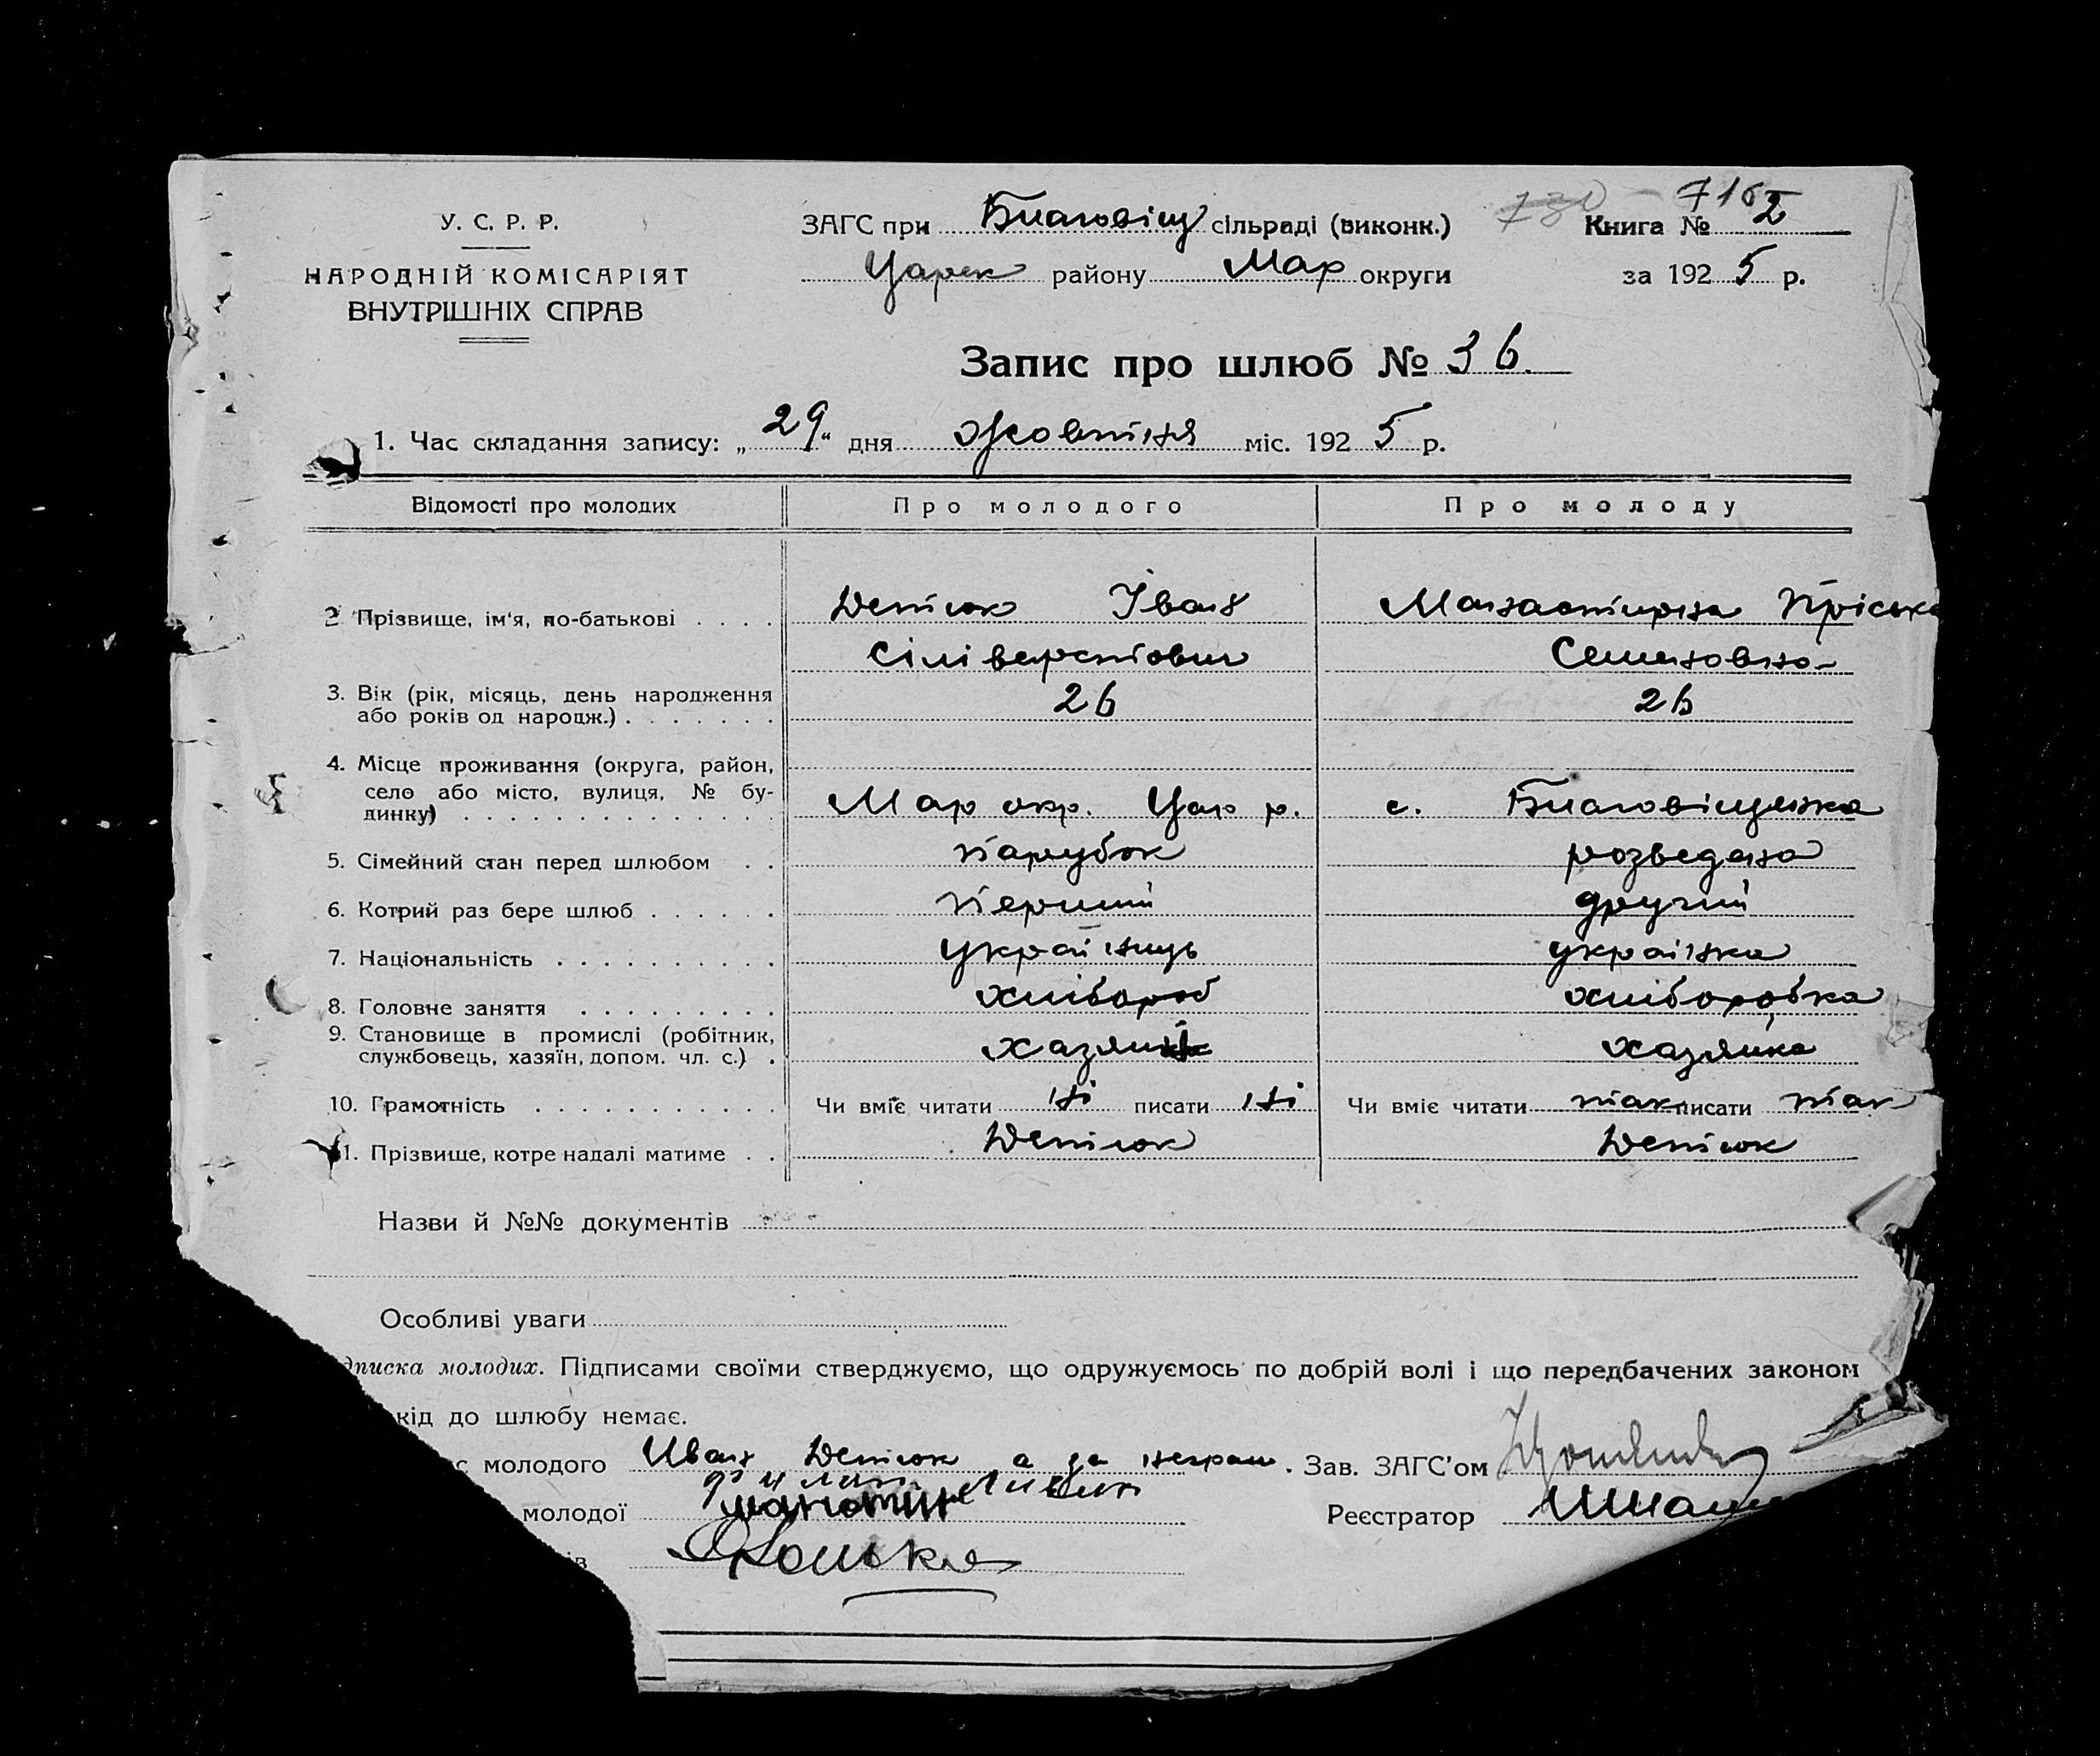 У. С. Р. Р.
НАРОДНІЙ КОМІСАРІЯТ
ВНУТРІШНІХ СПРАВ
ЗАГС при Благовіщ сільраді (виконк.)
Царек району Мар округи
730 - 716
Книга № 2
за 1925 р.
Запис про шлюб № 36.
1. Час складання запису: „29“ дня жовтня міс. 1925 р.
Відомості про молодих Про молодого Про молоду
2 Прізвище, ім'я, по-батькові . . . . Детюк Іван Манастирна Пріська
Сіліверстович Семеновна
3. Вік (рік, місяць, день народження
або років од народж.) . . . . . . . 26 26
4. Місце проживання (округа, район,
село або місто, вулиця, № бу-
динку) . . . . . . . . . . . . . . Мар окр. Цар р. с. Благовіщенка
5. Сімейний стан перед шлюбом . . парубок розведена
6. Котрий раз бере шлюб . . . . . . перший другий
7. Національність . . . . . . . . . . українець українка
8. Головне заняття . . . . . . . . . хлібороб хліборобка
9. Становище в промислі (робітник,
службовець, хазяїн, допом. чл. с.) . хазяин хазяйка
10. Грамотність . . . . . . . . . . . Чи вміє читати ні писати ні Чи вміє читати так писати так
11. Прізвище, котре надалі матиме . . Детюк Детюк
Назви й №№ документів
Особливі уваги
дписка молодих. Підписами своїми стверджуємо, що одружуємось по добрій волі і що передбачених законом
кід до шлюбу немає.
с молодого Иван Детюк а за неграм. Зав. ЗАГС'ом
молодої Реєстратор
ів